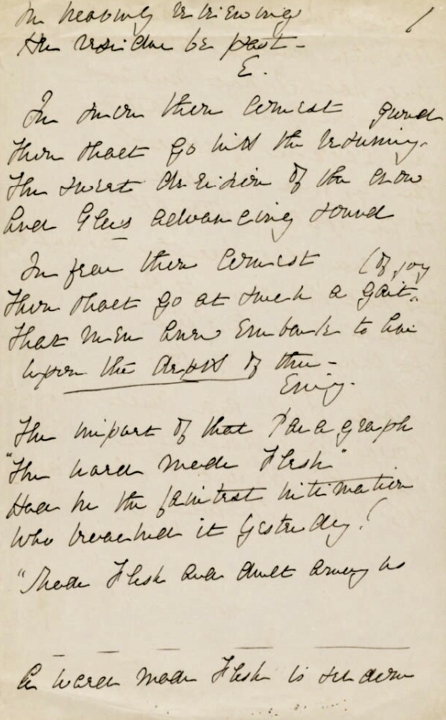 In reviewing
the residue be past -
E.
In snow thou comest ground
Thou shalt go with the resuming.
The sweet derision of the crow
And Glee's advancing sound
In fear thou comest (of joy
Thou shalt go at such a gait.
That men anew Embark to live
upon the depth of thee -
Emily.
The import of that Paragraph
"The word made Flesh"
Had he the faintest intimation
Who broached it Yesterday!
"Made Flesh and dwelt among us
A word made Flesh is seldom